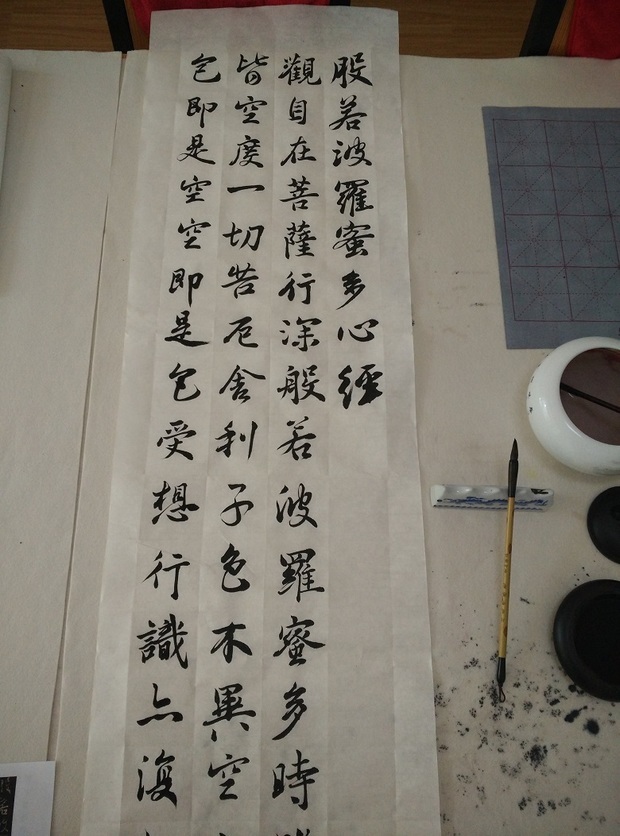 般若波羅蜜多心經
觀自在菩薩行深般若波羅蜜多時
皆空度一切苦厄舍利子色不異空
色即是空空即是色受想行識亦復